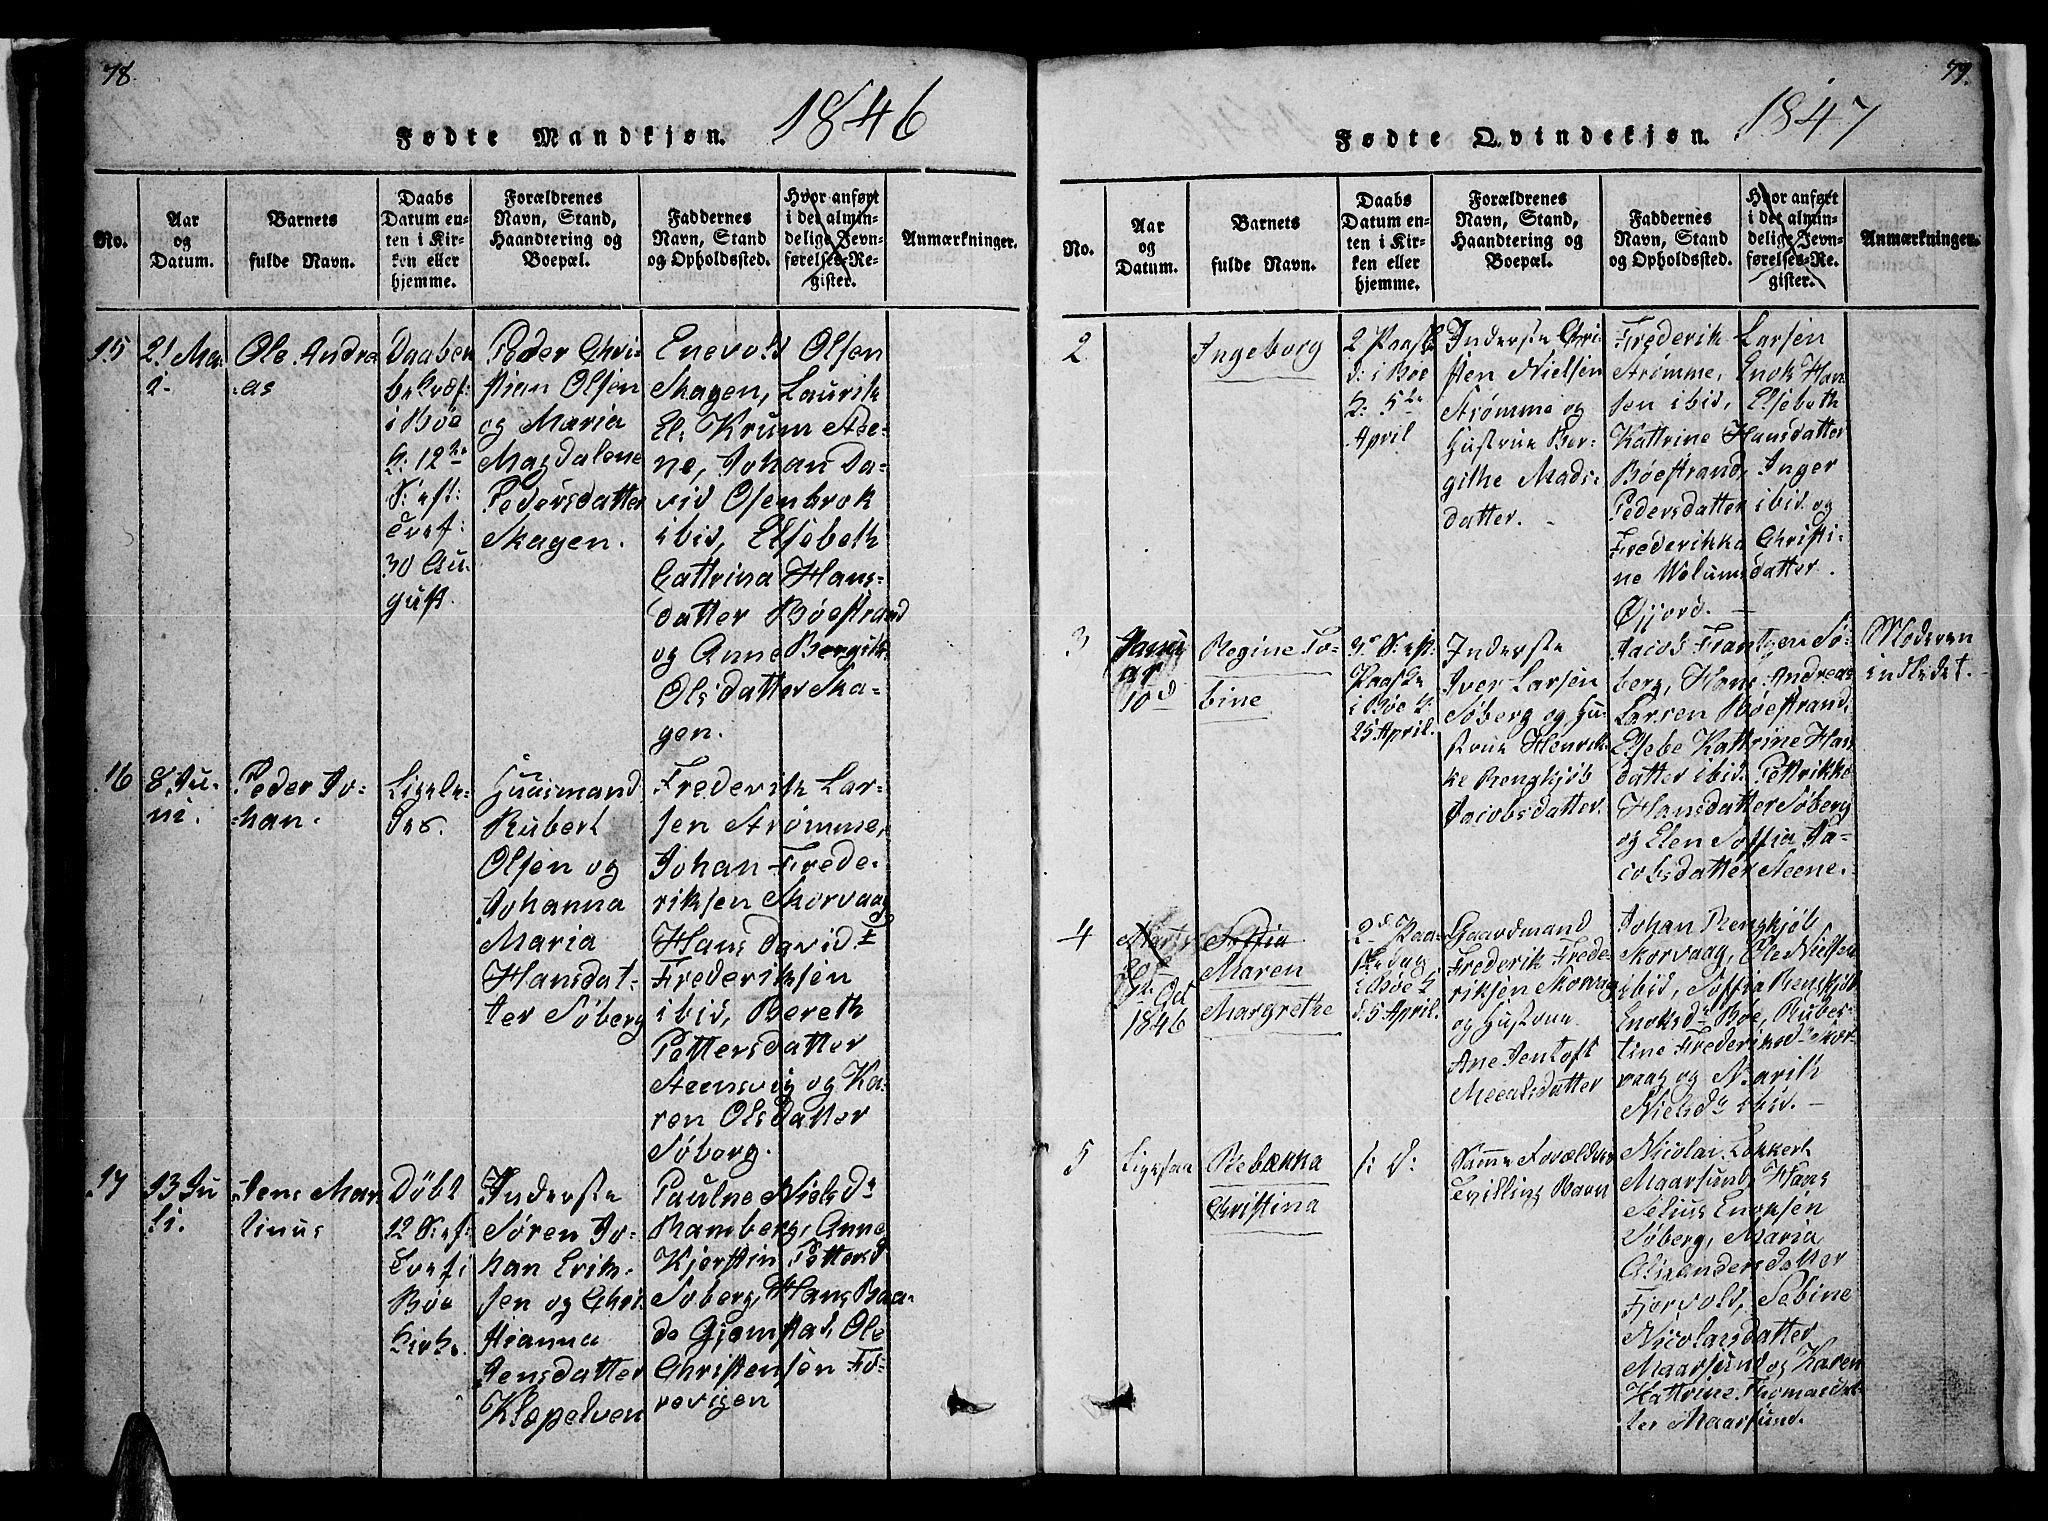 78.
Fødte Mandkjøn. 1846
No.
Aar
og
Datum.
Barnets
fulde Navn.
Daabs
Datum en-
ten i Kir-
ken eller
hjemme.
Forældrenes
Navn, Stand,
Haandtering og
Boepæl.
Faddernes
Navn, Stand
og Opholdssted.
Hvor anført
i det almin-
delige Jevn-
førelses-Re-
gister.
Anmærkninger.
15
21 Ma-
i
Ole Andre-
as
Daaben
bekræf:
i Bøe
K: 12te
S: eft:
Tref:
30 Au-
gust.
Peder Chri-
stian Olsen
og Maria
Magdalene
Pedersdatter
Skagen.
Enevold Olsen
Skagen, Laurik
El. Krum Ste-
ne, Johan Da-
vid Osenbrok
ibid, Elsebeth
Cattrina Hans-
datter Bøestrand
og Anne Bergith
Olsdatter Ska-
gen.
16
8 Ju-
ni.
Peder Jo-
han.
Ligele-
des.
Huusmand
Rubert
Olsen og
Johanna
Maria
Hansdat-
ter Søberg
Frederik Lar-
sen Strømme,
Johan Frede-
riksen Skorvaag
Hans David
Frederiksen
ibid, Bereth
Pettersdatter
Steensvig og Ka-
ren Olsdatter
Søberg.
17
13 Ju
li.
Jens Mar
tinus
Døbt
12 S: ef:
Tref:
Bøe
Kirke
Inderste
Søren Jo-
han Erik-
sen og Chri
stianna
Jensdatter
Klæpelven
Paulne Nielsdr
Ramberg, Anne
Kjerstin Pettersd
Søberg, Hans Baa-
de Gjemstad, Ole
Christensen Fo-
revigen
79.
Fødte Qvindekjøn. 1847
No.
Aar
og
Datum.
Barnets
fulde Navn.
Daabs
Datum en-
ten i Kir-
ken eller
hjemme.
Forældrenes
Navn, Stand,
Haandtering og
Boepæl.
Faddernes
Navn, Stand
og Opholdssted.
Hvor anført
i det almin-
delige Jevn-
førelses-Re-
gister.
Anmærkninger.
2
Ingeborg
2 Paask
d: i Bøe
K: 5te
April
Inderste Chri-
sten Nielsen
Strømme og
Hustrue Ber-
githe Mads-
datter.
Frederik Larsen
Strømme, Enok Han
sen ibid, Elsebeth
Kattrine Hansdatter
Bøestrand, Inger
Pedersdatter ibid og
Frederikka Christi-
ne Wolumsdatter
Øjjord.
3
Janu
ar
10d
Regine To-
bine
3die S: eft:
Paaske
i Bøe K:
25 April.
Inderste
Iver Larsen
Søberg og Hu-
strue Henrik-
ke Rengkjøb
Jacobsdatter.
Jacob Frantzen Sø-
berg, Hans Andreas
Larsen Bøestrand,
Elsebe Kattrine Hans
datter ibid. Pettrikke
Hansdatter Søberg
og Elen Soffia Ja-
cobsdatter Steene.
Moderen
indledet.
4
Oct
1846
Soffia
Maren
Margrethe
2d Paa-
skedag
i Bøe K
d: 5 April.
Gaardmand
Frederik Frede
riksen Skorvag
og Hustrue
Ane Jentoft
Mecalsdatter
Johan Rengkjøb
Skorvaag, Ole Nielsen
ibid, Soffia Renskjøb
Enoksdr Bøe, Ruber-
tine Frederiksdr Skor-
vaag og Marith
Nielsdr ibid.
5
Ligesaa
Rebekka
Christina
i: d:
Samme Forældres
Tvilling Barn
Nicolai Lokkert
Maarsund, Hans
Selius Enoksen
Søberg, Maria
Alexandersdatter
Fjervold, Sebine
Nicolaisdatter
Maarsund og Karen
Kattrine Thomasdat-
ter Maarsund.